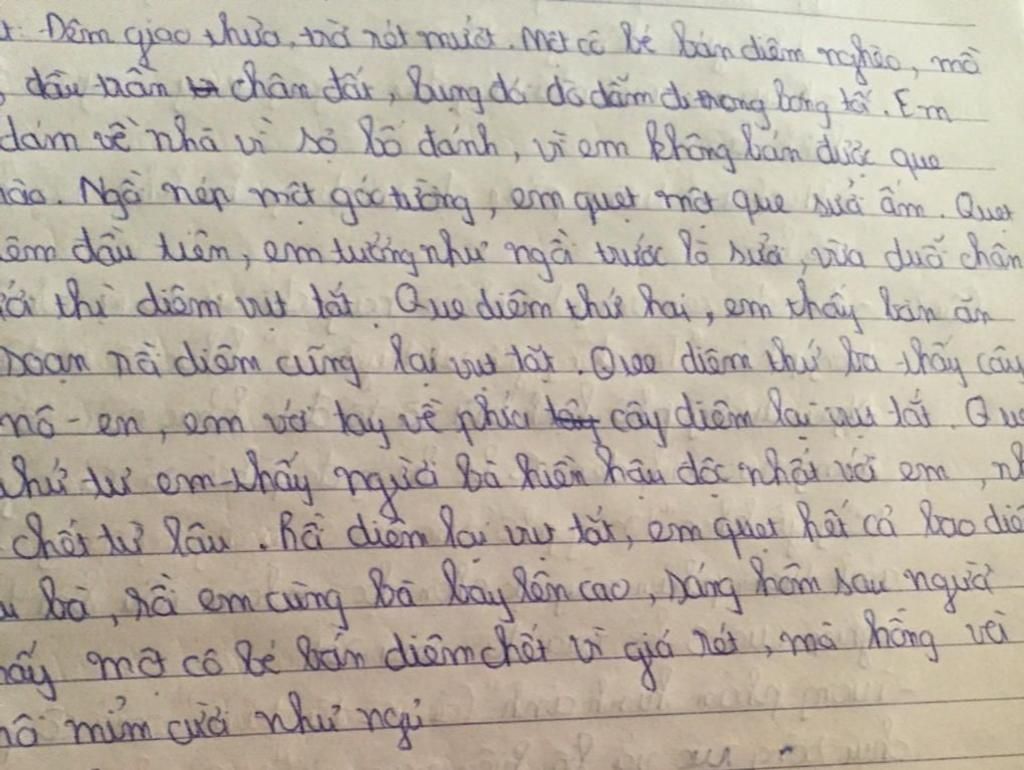 Đêm giao thừa, trời rét mướt. Một cô bé bán diêm nghèo, mồ
đầu trần chân đất, bụng đói dò dẫm đi trong bóng tối. Em
dám về nhà vì sợ bố đánh, vì em không bán được que
nào. Ngồi nép một góc tường, em quẹt một que sưởi ấm. Quẹt
êm đầu tiên, em tưởng như ngồi trước lò sưởi, vừa duỗi chân
thì diêm vụt tắt. Que diêm thứ hai, em thấy bàn ăn
soạn rồi diêm cũng lại vụt tắt. Que diêm thứ ba thấy cây
nô-en, em với tay về phía cây diêm lại vụt tắt. Que
thứ tư em thấy người bà hiền hậu độc nhất với em, nh
chết từ lâu. Rồi diêm lại vụt tắt, em quẹt hết cả bao diê
bà, rồi em cùng bà bay lên cao, sáng hôm sau người
hấy một cô bé bán diêm chết vì giá rét, má hồng và
ôi mỉm cười như ngủ